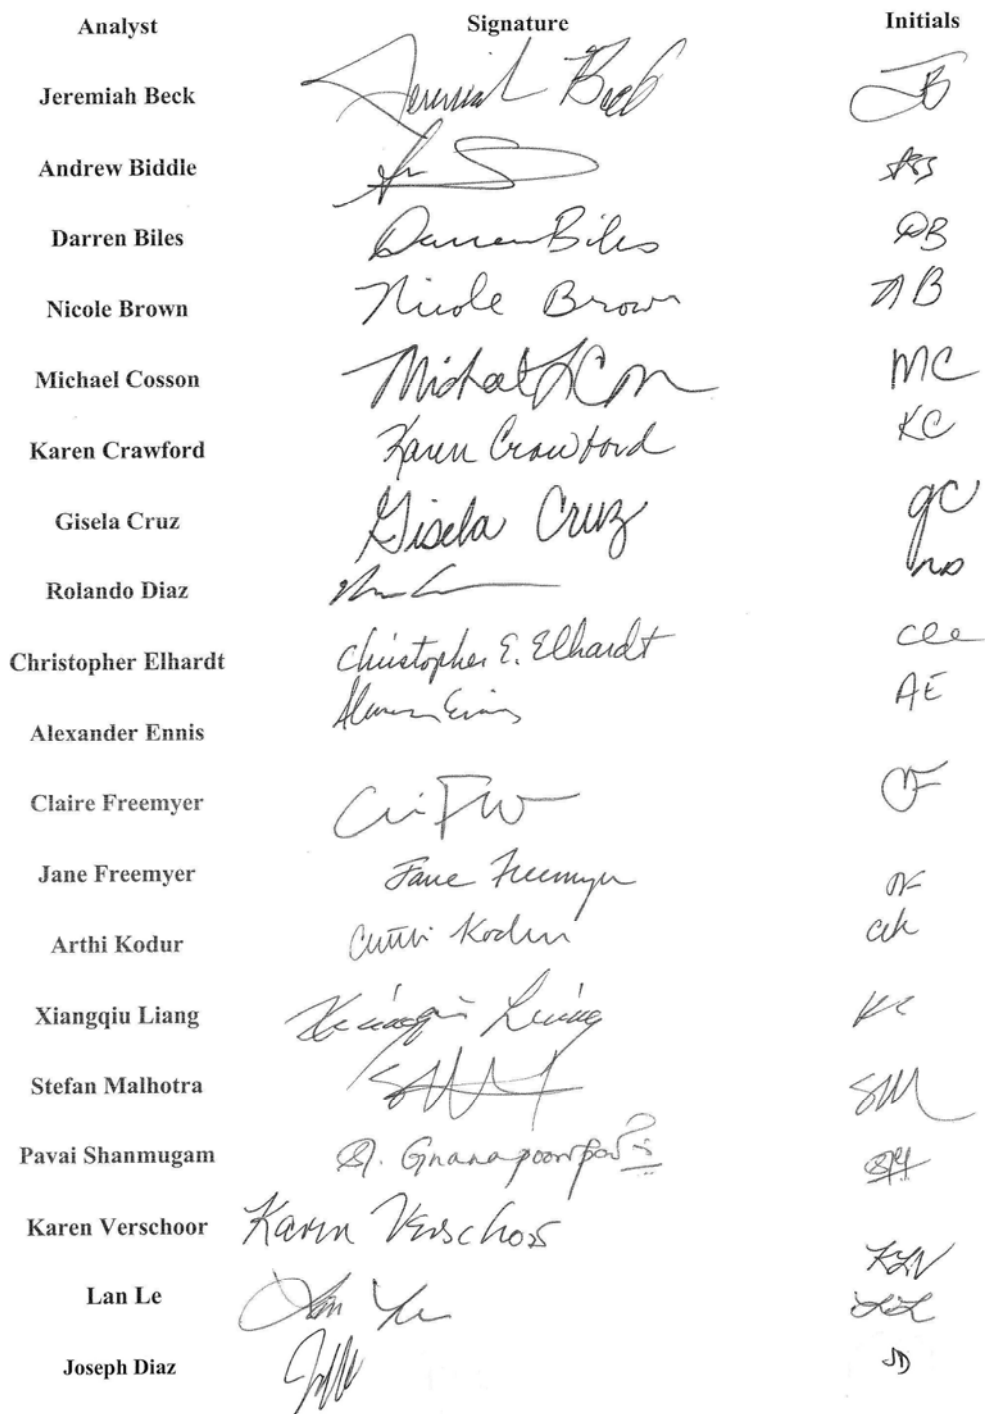 Analyst Signature Initials
Jeremiah Beck Jeremiah Beck JB
Andrew Biddle
Darren Biles Darren Biles DB
Nicole Brown Nicole Brown NB
Michael Cosson Michael MC
Karen Crawford Karen Crawford KC
Gisela Cruz Gisela Cruz GC
Rolando Diaz
Christopher Elhardt Christopher E. Elhardt cee
Alexander Ennis AE
Claire Freemyer CF
Jane Freemyer Jane Freemyer JF
Arthi Kodur Arthi Kodur ak
Xiangqiu Liang Xiangqiu Liang
Stefan Malhotra SM
Pavai Shanmugam
Karen Verschoor Karen Verschoor KLV
Lan Le LL
Joseph Diaz JD